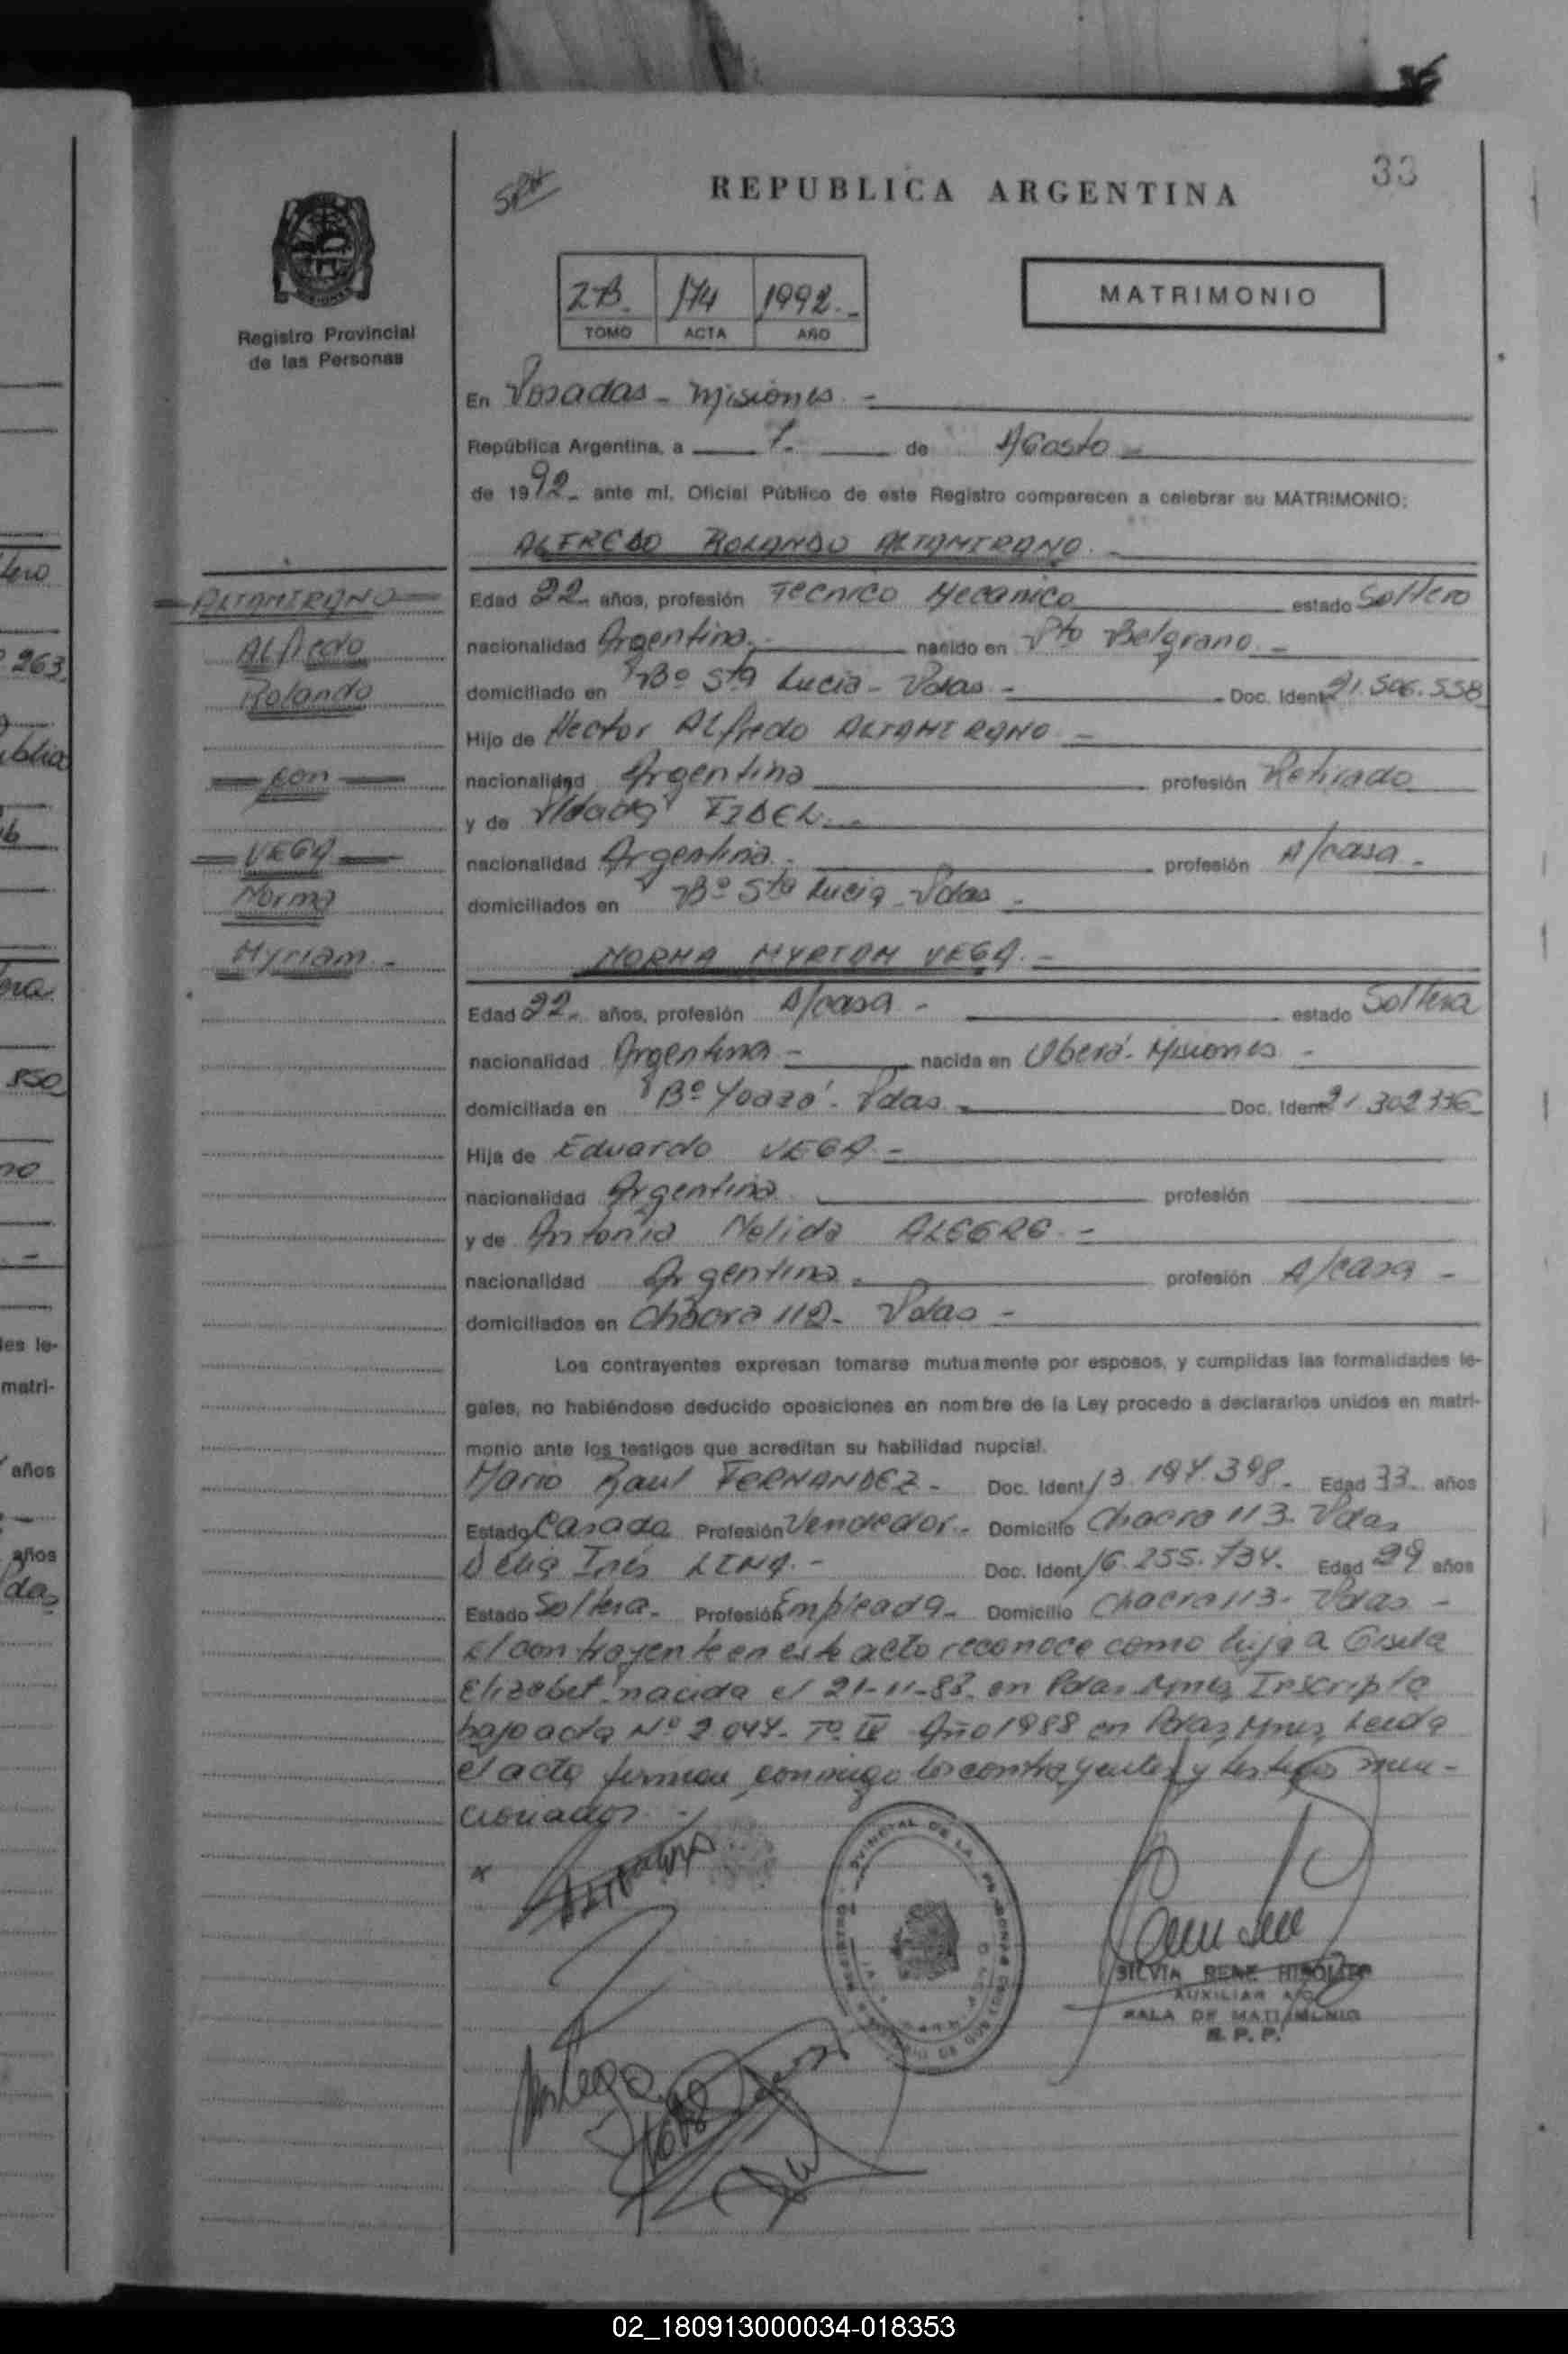 36
33
REPUBLICA ARGENTINA
Registro Provincial
de las Personas
174 1992.-
TOMO ACTA AÑO
MATRIMONIO
En Posadas - Misiones -
República Argentina, a 7.- de Agosto -
de 1992.- ante mí, Oficial Público de este Registro comparecen a celebrar su MATRIMONIO:
ALFREDO ROLANDO ALTAMIRANO.-
ALTAMIRANO
Alfredo
Rolando
con
VEGA
Norma
Myriam.-
Edad 22.- años, profesión Tecnico Mecanico estado Soltero
nacionalidad Argentina.- nacido en Pto Belgrano.-
domiciliado en Bº Sta Lucia - Pdas - Doc. Ident. 21.506.558
Hijo de Hector Alfredo ALTAMIRANO -
nacionalidad Argentina profesión Retirado
y de FIDEL.-
nacionalidad Argentina.- profesión A/casa.-
domiciliados en Bº Sta Lucia - Pdas -
NORMA MYRIAM VEGA.-
Edad 22.- años, profesión A/casa - estado Soltera
nacionalidad Argentina - nacida en Oberá - Misiones -
domiciliada en Bº Yoazá - Pdas - Doc. Ident. 21.302336
Hija de Eduardo VEGA -
nacionalidad Argentina profesión
y de Antonia Nelida ALEGRE -
nacionalidad Argentina.- profesión A/casa -
domiciliados en Chacra 112 - Pdas -
Los contrayentes expresan tomarse mutuamente por esposos, y cumplidas las formalidades le-
gales, no habiéndose deducido oposiciones en nombre de la Ley procedo a declararlos unidos en matri-
monio ante los testigos que acreditan su habilidad nupcial.
Mario Raul FERNANDEZ - Doc. Ident. 13.197.398 - Edad 33 años
Estado Casado Profesión Vendedor - Domicilio Chacra 113 - Pdas
Delia Inés LENA.- Doc. Ident. 16.255.734. Edad 29 años
Estado Soltera - Profesión Empleada - Domicilio Chacra 113 - Pdas -
El contrayente en este acto reconoce como hija a Gisela
Elizabet nacida el 21-11-88 en Pdas Mnes, Inscripta
bajo acta Nº 2.044 - Tº IV Año 1988 en Pdas, Mnes, Leida
el acta firman conmigo los contrayentes y testigos men-
cionados.-
SILVIA RENE
AUXILIAR A/C
SALA DE MATRIMONIO
R. P. P.
02_180913000034-018353